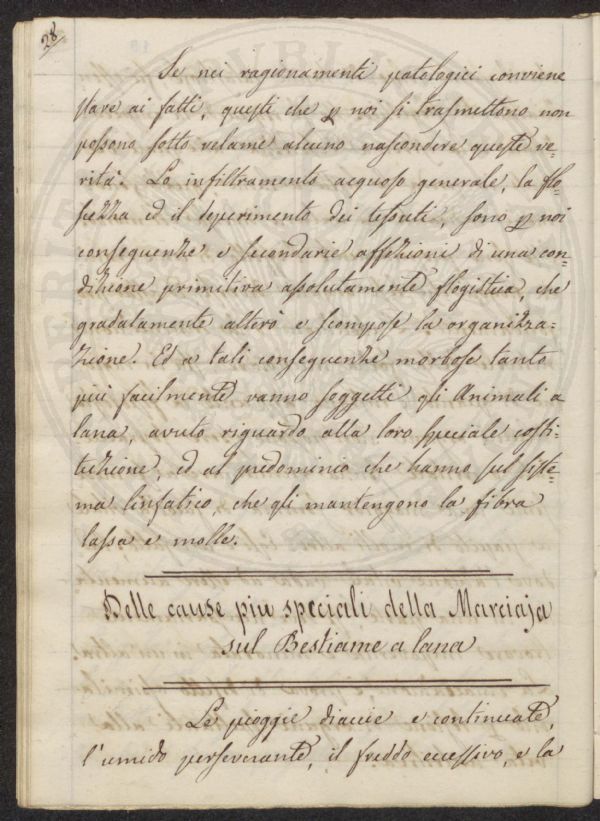 28
Se nei ragionamenti patologici conviene
stare ai fatti, questi che p noi si trasmettono non
possono sotto velame alcuno nascondire queste ve=
rità. Lo infiltramento acquoso generale, la flo=
sezza ed il deperimento dei tessuti, sono p noi
conseguenze e secondarie affezioni di una con=
dizione primitiva assolutamente flogistica, che
gradatamente alterò e scompose la organizza=
zione. Ed a tali conseguenze morbose tanto
più facilmente vanno soggetti gli Animali a
lana, avuto riguardo alla loro speciale costi=
tuzione, ed al predominio che hanno sul siste=
ma linfatico, che gli mantengono la fibra
lassa e molle.
Delle cause più speciali della Marciaja
sul Bestiame a lana
Le pioggie diaccie e continuate,
l'umido perseverante, il freddo eccessivo, e la